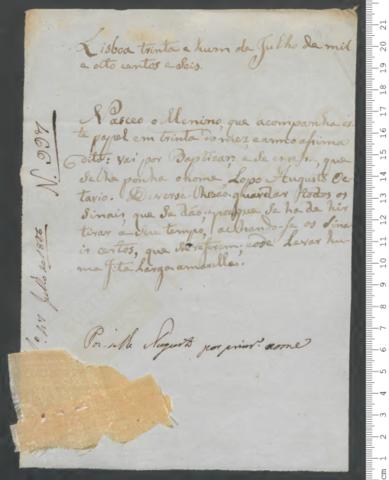 Lisboa trinta e hum de Julho de mil
e oito centos e seis.
Nasceo o Menino, que acompanha es
te papel em trinta do mez e anno asima
dito: vai por Baptizar, e de , que
se lhe ponha o nome Lopo Augusto Oc
tavio. guardar todos os
sinais que se dão, porque se ha de hir
tirar a seu tempo, achando-se os sina
is certos, que se referem; e leva hu
ma fita larga amarella.
Augusto por prim.º nome
N. 997
Julho de 1806